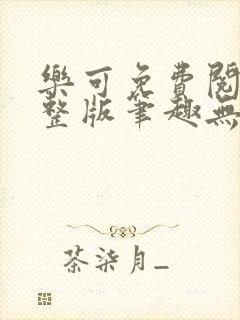 樂可免費閱
整版筆趣無
茶柒月_